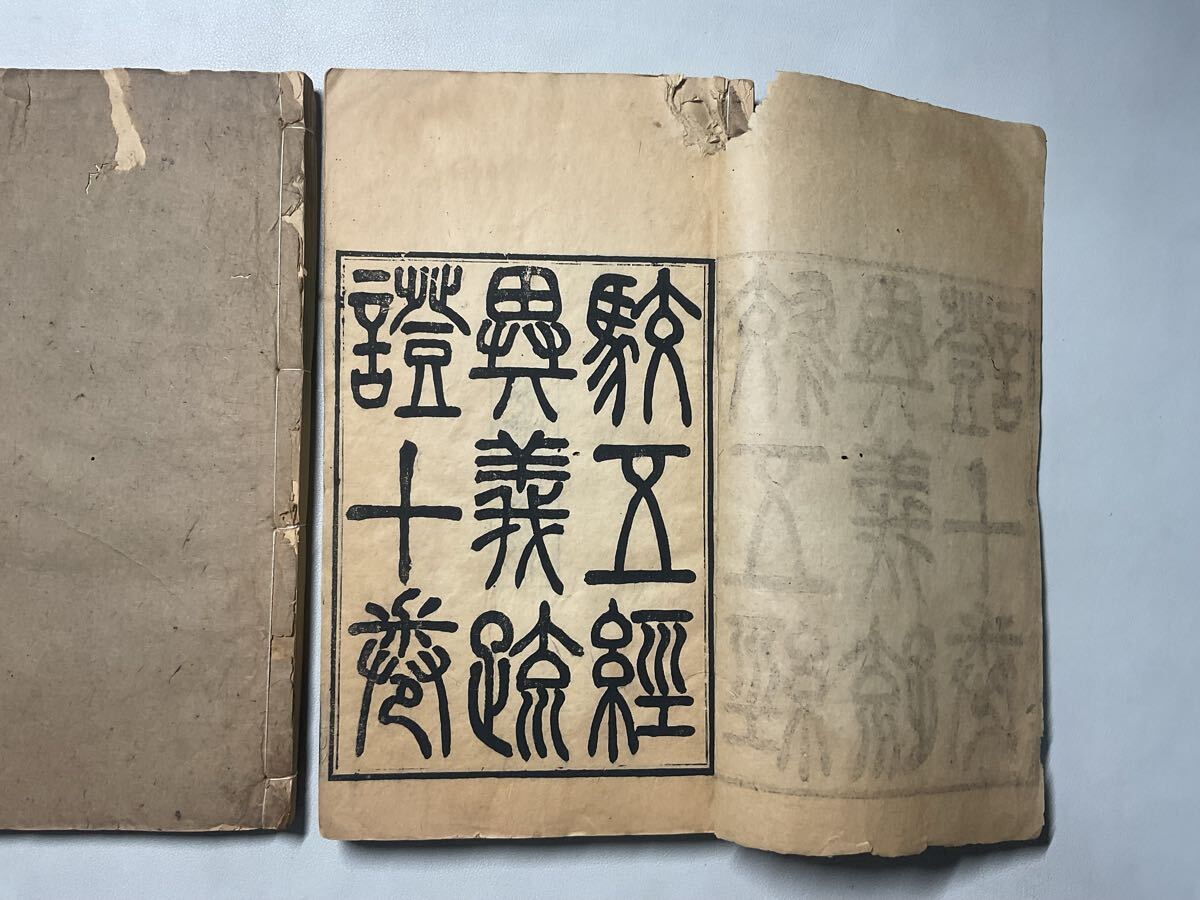 駮五經
異義疏
證十卷